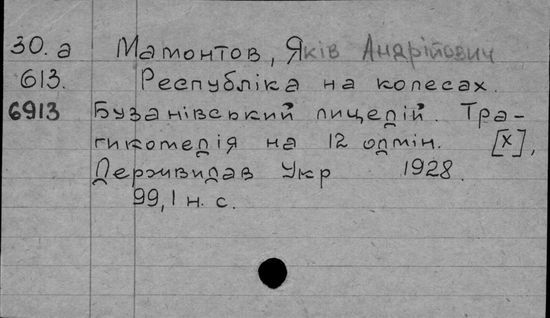 30.а Мамонтов, Яків Андрійович
613. Республіка на колесах.
6913 Бузанівський лицедій. Тра-
гикомедія на 12 одмін. [X],
Держвидав Укр 1928.
99,1 н. с.